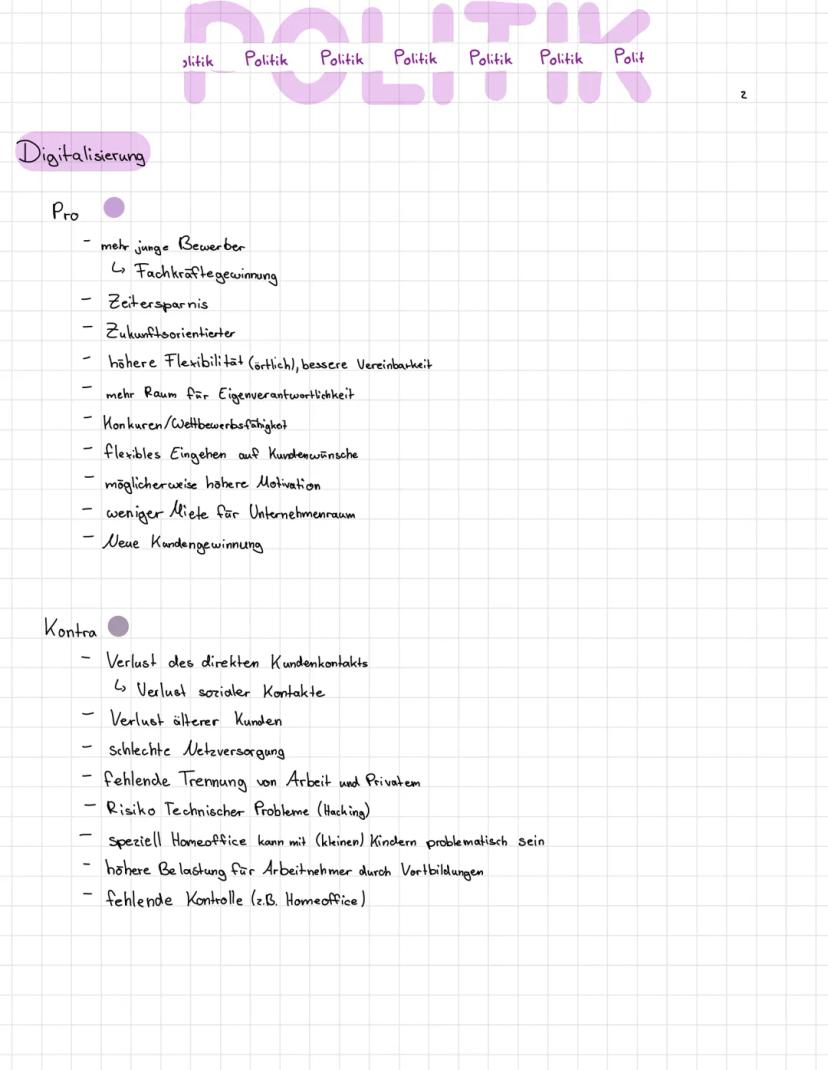 POLITIK
olitik Politik Politik Politik Politik Politik Polit
2
Digitalisierung
Pro
- mehr junge Bewerber
↳ Fachkräftegewinnung
- Zeitersparnis
- Zukunftsorientierter
- höhere Flexibilität (örtlich), bessere Vereinbarkeit
- mehr Raum für Eigenverantwortlichkeit
- Konkuren/Wettbewerbsfähigkeit
- flexibles Eingehen auf Kundenwünsche
- möglicherweise höhere Motivation
- weniger Miete für Unternehmenraum
- Neue Kundengewinnung
Kontra
- Verlust des direkten Kundenkontakts
↳ Verlust sozialer Kontakte
- Verlust älterer Kunden
- schlechte Netzversorgung
- fehlende Trennung von Arbeit und Privatem
- Risiko Technischer Probleme (Hacking)
- speziell Homeoffice kann mit (kleinen) Kindern problematisch sein
- höhere Belastung für Arbeitnehmer durch Vortbildungen
- fehlende Kontrolle (z.B. Homeoffice)